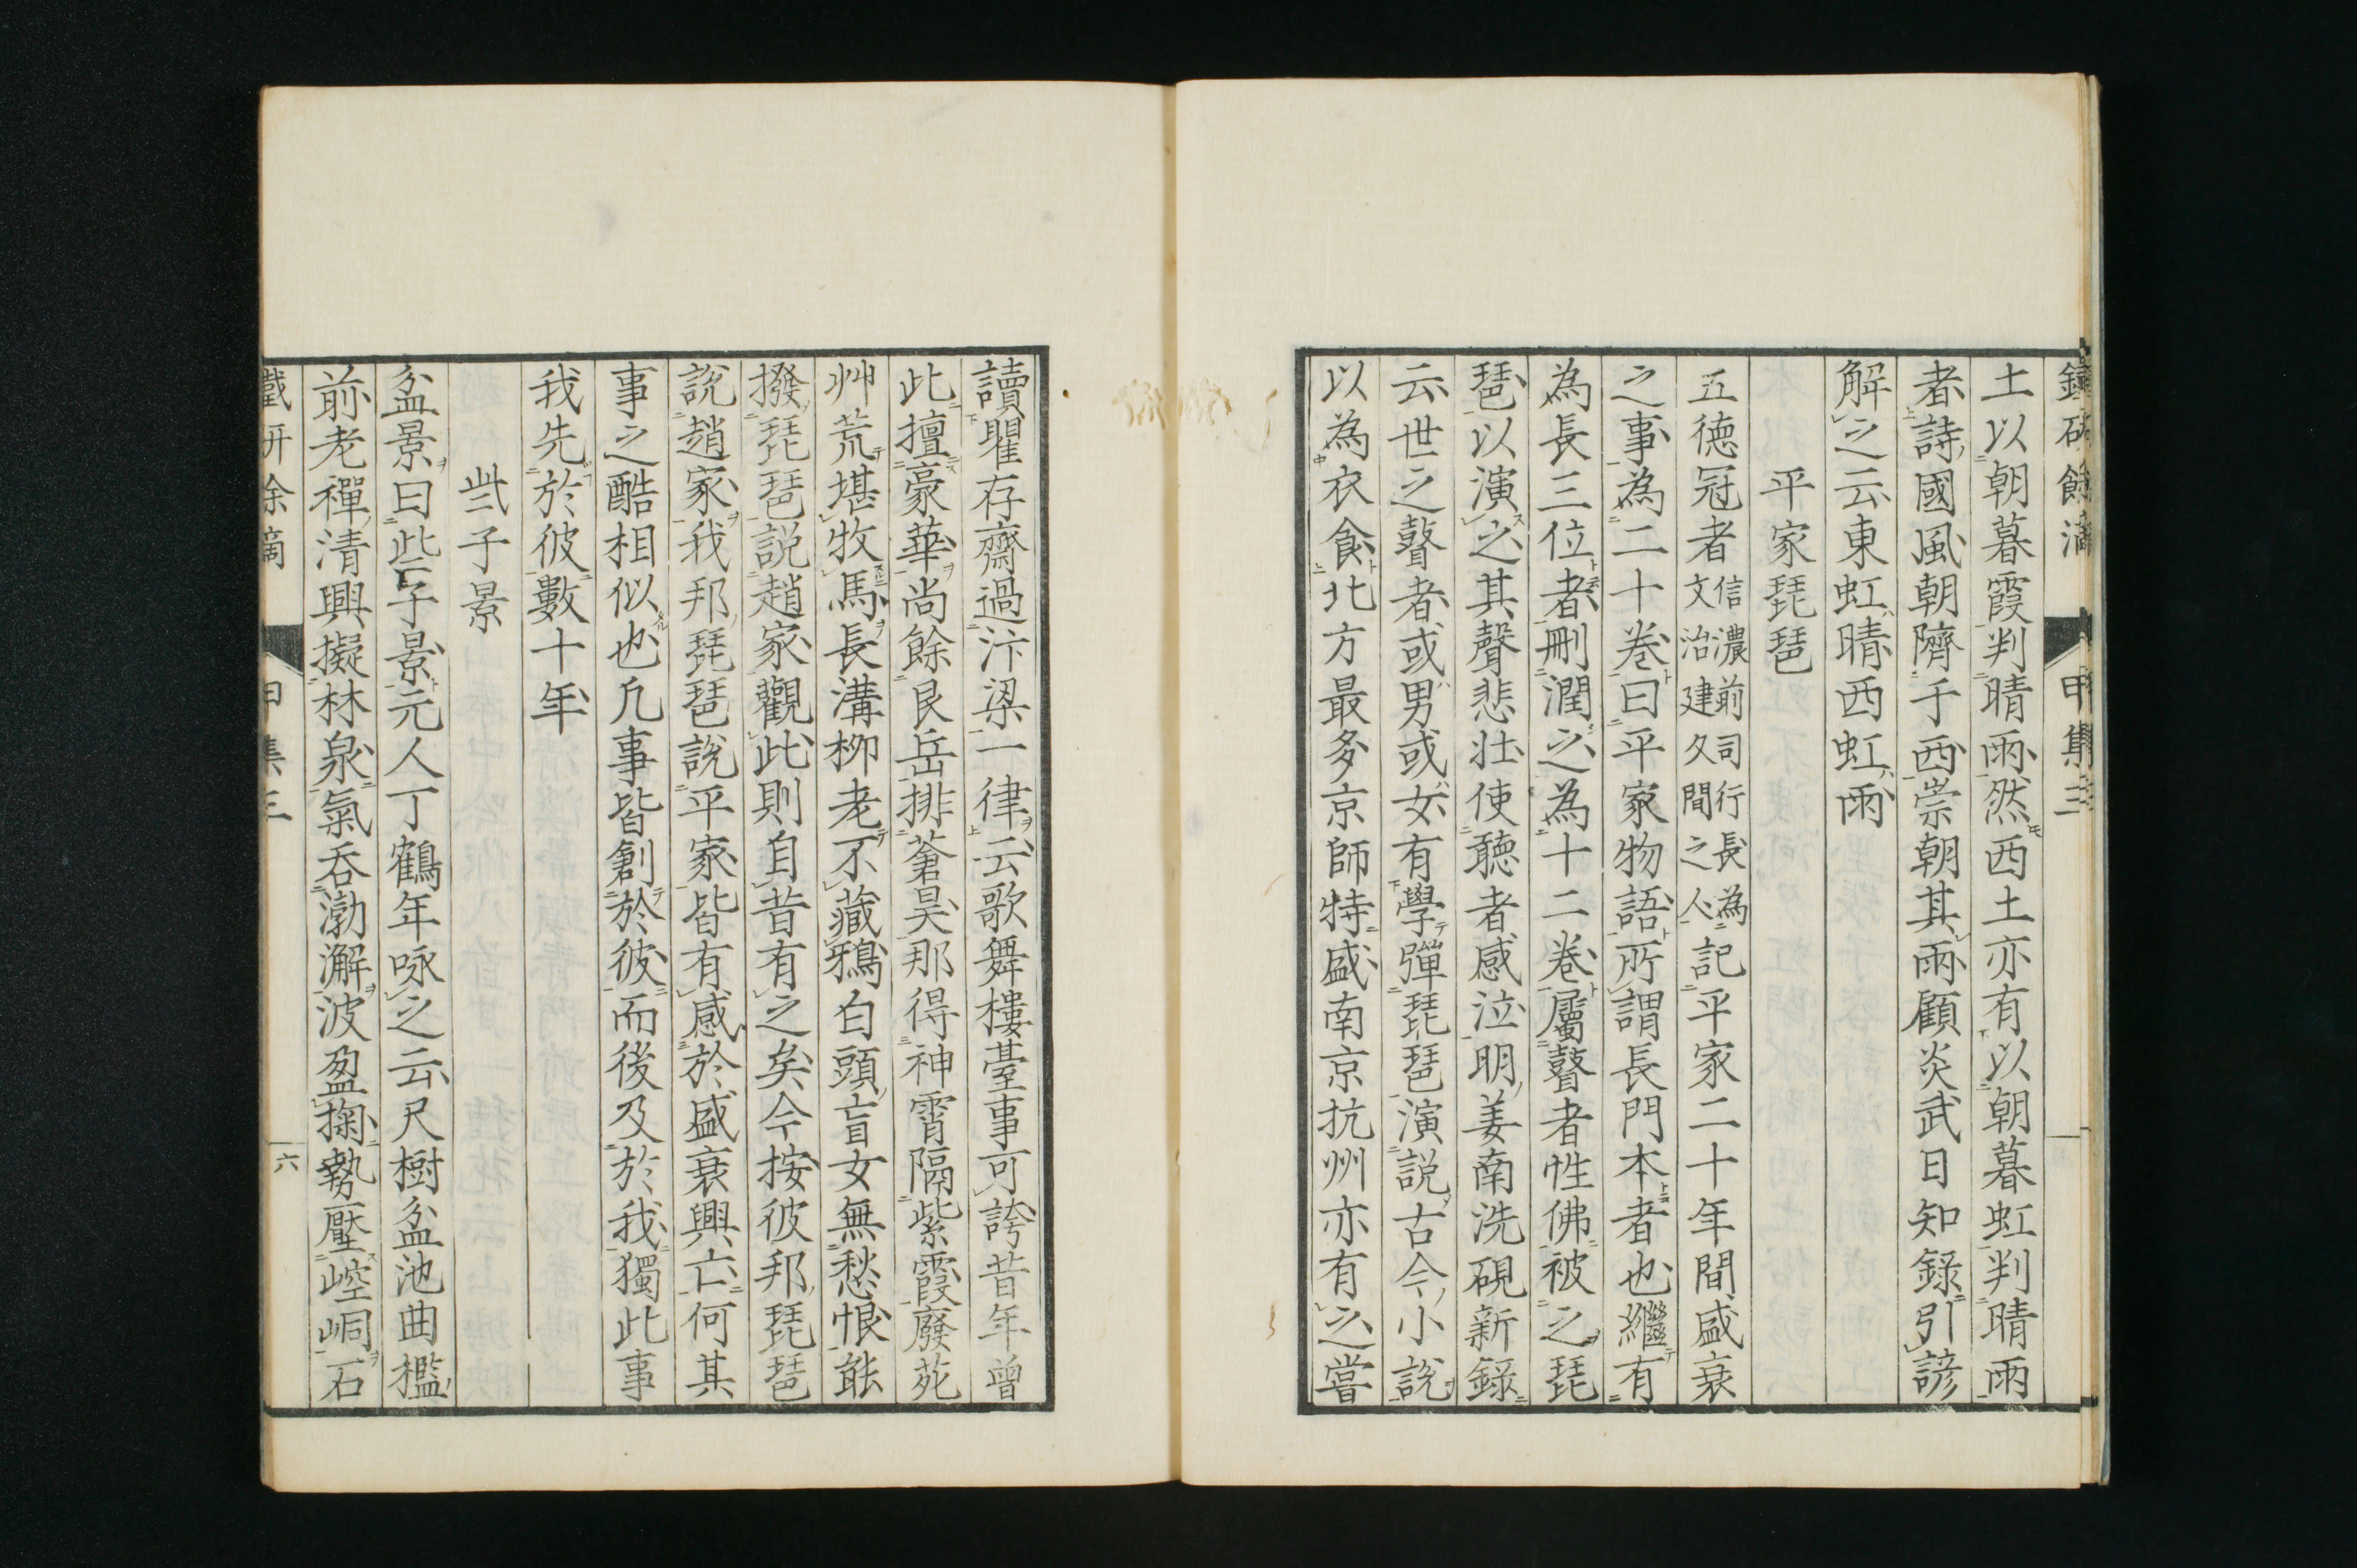 土以朝暮霞判晴雨然西土亦有以朝暮虹判晴雨
者詩國風朝隮于西崇朝其雨顧炎武日知錄引諺
解之云東虹晴西虹雨
平家琵琶
五徳冠者信濃前司行長為文治建久間之人記平家二十年間盛衰
之事為二十卷曰平家物語所謂長門本者也繼有
為長三位者刪潤之為十二卷屬瞽者性佛被之琵
琶以演之其聲悲壯使聽者感泣明姜南洗硯新錄
云世之瞽者或男或女有學彈琵琶演說古今小說
以為衣食北方最多京師特盛南京抗州亦有之嘗
讀瞿存齋過汴梁一律云歌舞樓臺事可誇昔年曾
此擅豪華尚餘艮岳排蒼昊那得神霄隔紫霞廢苑
艸荒堪牧馬長溝柳老不藏鴉白頭盲女無愁恨能
撥琵琶說趙家觀此則自昔有之矣今按彼邦琵琶
說趙家我邦琵琶說平家皆有感於盛衰興亡何其
事之酷相似也凡事皆創於彼而後及於我獨此事
我先於彼數十年
些子景
盆景曰些子景元人丁鶴年咏之云尺樹盆池曲檻
前老禪清興擬林泉氣吞渤澥波盈掬勢壓崆峒石
甲集三
六